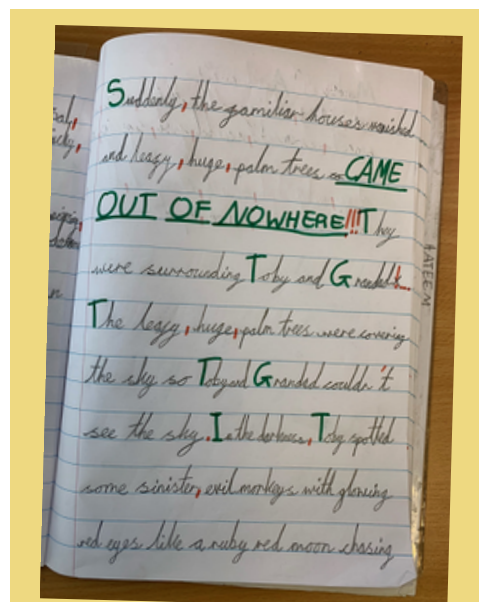 Suddenly, the familiar houses vanished
and leafy, huge, palm trees CAME
OUT OF NOWHERE!!! They
were surrounding Toby and Grandad!...
The leafy, huge, palm trees were covering
the sky so Toby and Grandad couldn't
see the sky. In the darkness, Toby spotted
some sinister, evil monkeys with glowing
red eyes like a ruby red moon chasing
ATEEM